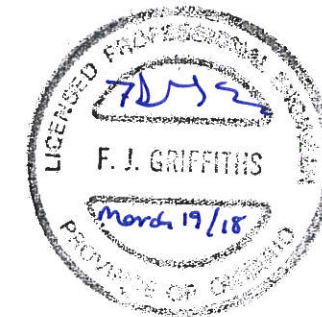 LICENSED PROFESSIONAL ENGINEER
F. J. GRIFFITHS
March 19/18
PROVINCE OF ONTARIO